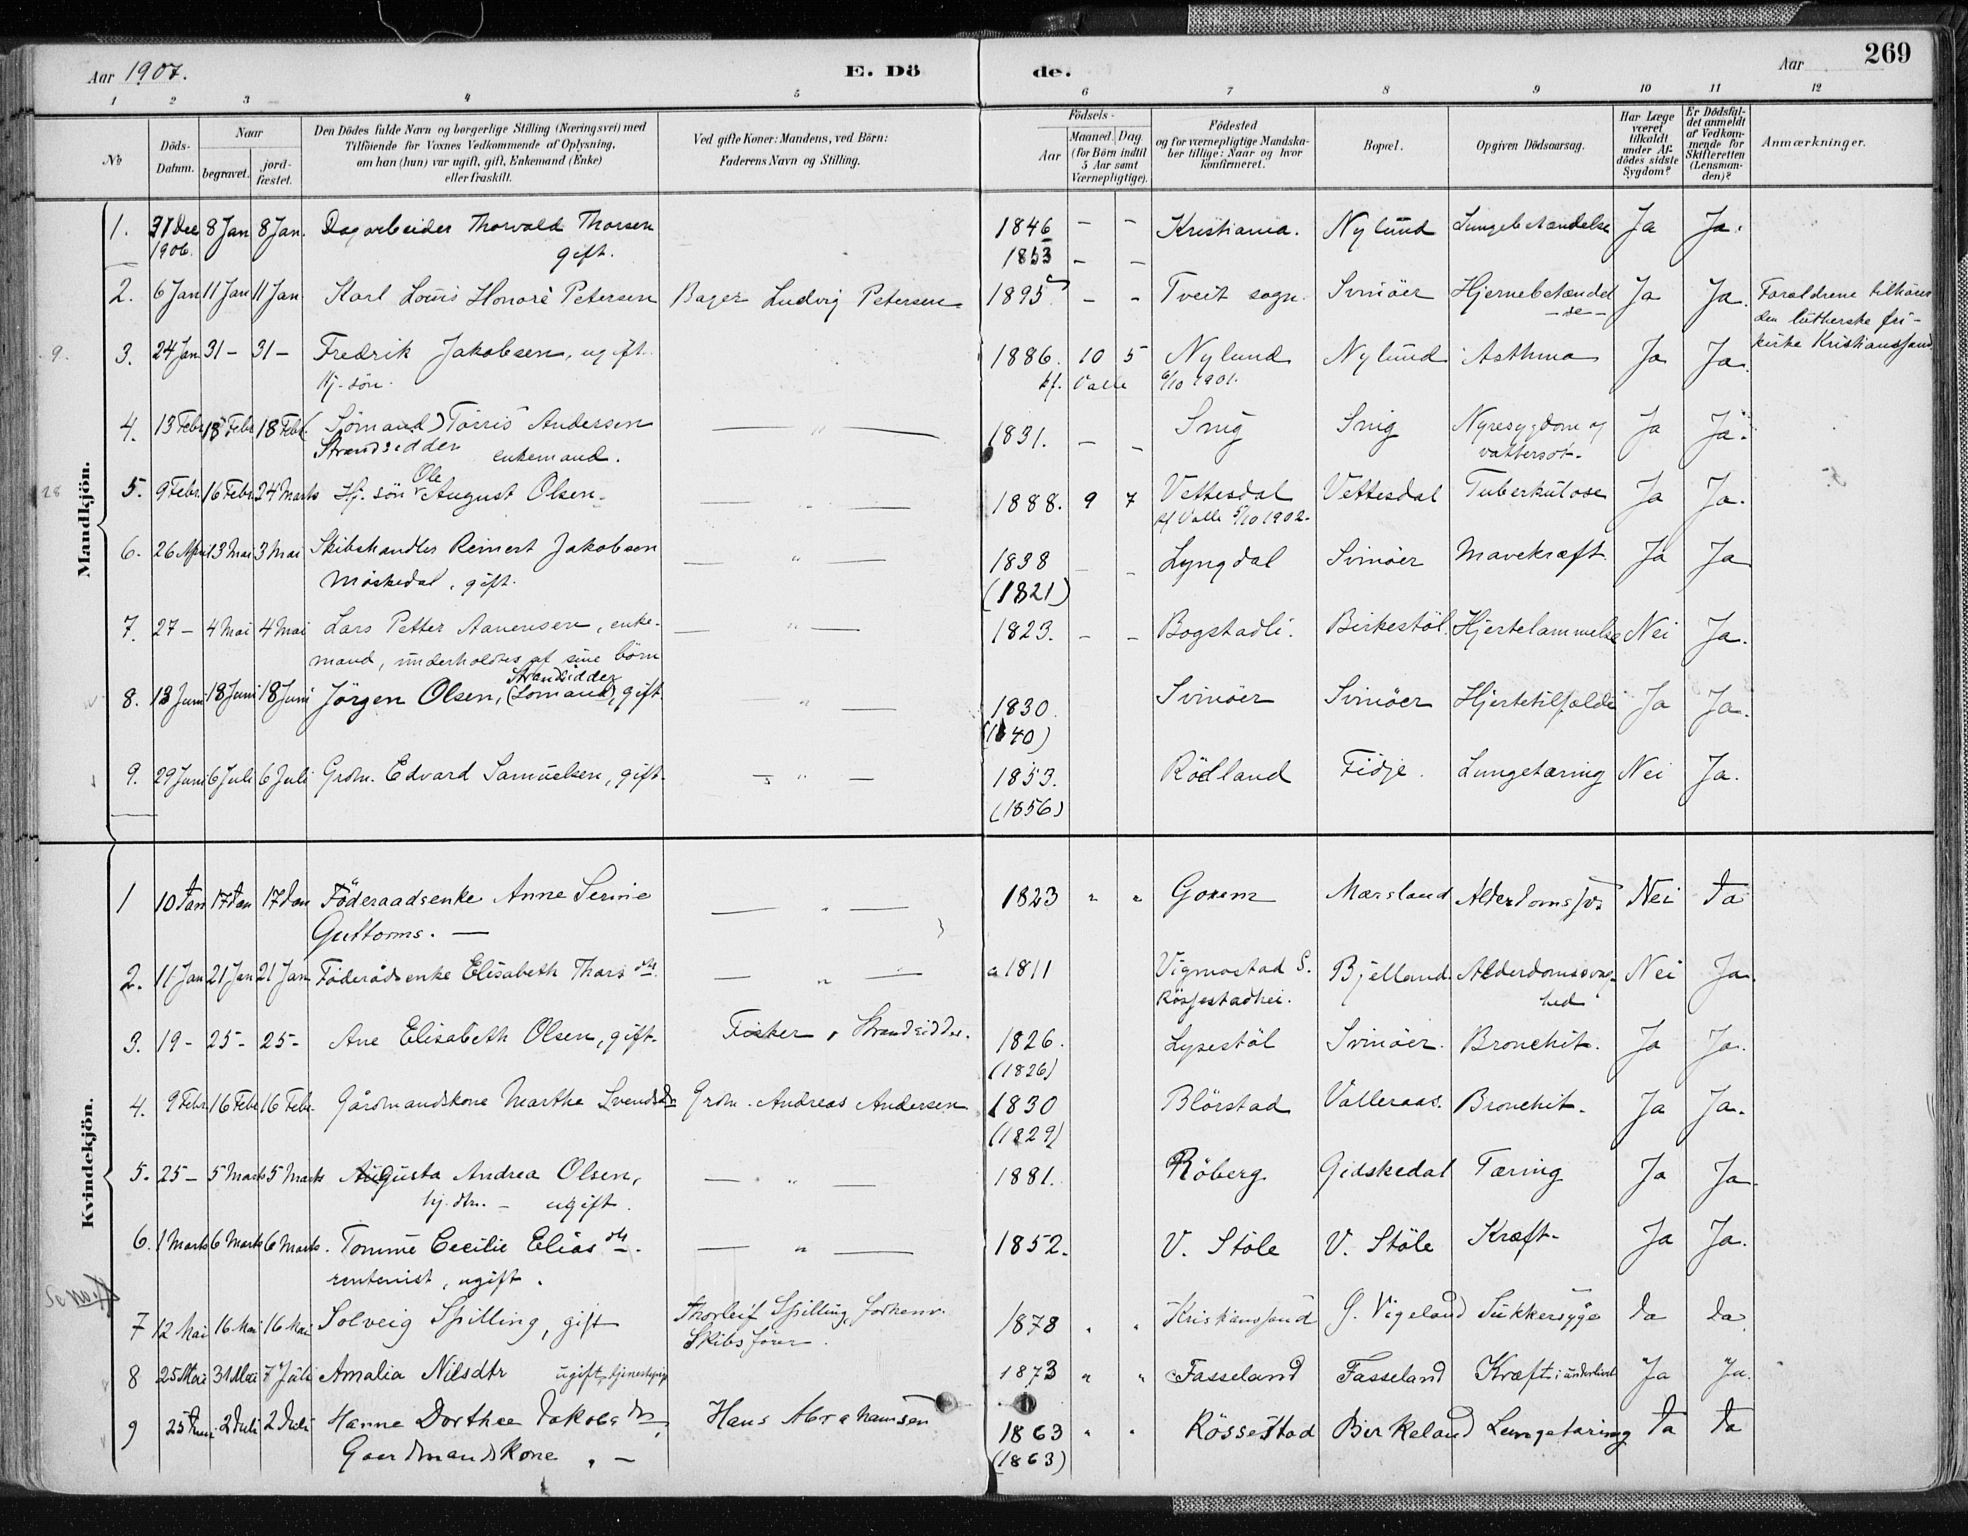 Aar 1907. E. Dö de. Aar 269
1 2 3 4 5 6 7 8 9 10 11 12
No
Döds-Datum.
Naar
begravet.
jord-fæstet.
Den Dödes fulde Navn og borgerlige Stilling (Næringsvei) med
Tilföiende for Voxnes Vedkommende af Oplysning,
om han (hun) var ugift, gift, Enkemand (Enke)
eller fraskilt.
Ved gifte Koner: Mandens, ved Börn:
Faderens Navn og Stilling.
Födsels-
Aar
Maaned. Dag
(for Börn indtil
5 Aar samt
Værnepligtige).
Födested
og for værnepligtige Mandska-
ber tillige: Naar og hvor
konfirmeret.
Bopæl.
Opgiven Dödsaarsag.
Har Læge
været
tilkaldt
under Af-
dödes sidste
Sygdom?
Er Dödsfal-
det anmeldt
af Vedkom-
mende for
Skifteretten
(Lensman-
den)?
Anmærkninger.
Mandkjön.
1. 31 Dec 8 Jan 8 Jan. Dagarbeider Thorvald Thorsen 1846 – – Kristiania. Nylund Lungebetændelse Ja Ja.
1906. gift. 1853 – –
2. 6 Jan 11 Jan 11 Jan Karl Louis Honoré Petersen Bager Ludvig Petersen 1895 – – Tveit sogn. Svinöer Hjernebetændel Ja Ja. Forældrene tilhörer
–se– den lutherske fri-
9. 3. 24 Jan 31 – 31 – Fredrik Jakobsen, ugift. 1886. 10 5 Nylund Nylund Asthma Ja Ja. kirke Kristianssand
Hj. sön. kf. Valle 6/10 1901.
4. 13 Febr 18 Febr 18 Febr. (Sömand) Torris Andersen – " – 1831. – – Snig Snig Nyresygdom og Ja Ja.
Strandsidder enkemand. vattersot.
Ole
28 5. 9 Febr. 16 Febr 24 Marts Hj. sön August Olsen. – " – 1888. 9 7 Vettesdal Vettesdal Tuberkulose Ja Ja.
kf Valle 5/10 1902.
6. 26 April 3 Mai 3 Mai Skibshandler Reinert Jakobsen – " – 1838 – – Lyngdal Svinöer Mavekræft. Ja Ja
Möskedal, gift. (1821)
7. 27 – 4 Mai 4 Mai Lars Petter Aanensen, enke- – " – 1823. – – Bogstadli. Birkestöl. Hjertelammelse Nei Ja.
mand, underholdtes af sine börn
Strandsidder
8. 13 Juni 18 Juni 18 Juni Jörgen Olsen, (Sömand), gift. " – 1830. Svinöer Svinöer Hjertetilfælde Ja Ja.
(1840)
9. 29 Juni 6 Juli 6 Juli Grdm. Edvard Samuelsen, gift. – " – 1853. Rödland Fidje. Lungetæring Nei Ja.
(1856)
Kvindekjön.
1 10 Jan 17 Jan 17 Jan Föderaadsenke Anne Serine – " – 1823 " " Aldersdomssv. Nei Ja
Guttorms. –
2. 11 Jan 21 Jan 21 Jan Föderådsenke Elisabeth Thorsdtr. – " – 1811 Vigmostad S. Bjelland. Alderdomssvag- Nei Ja.
Rössestadhei. hed
3. 19 – 25 – 25 – Ane Elisabeth Olsen, gift. Fisker, Strandsidder. 1826. Lysestöl Svinöer. Bronchit. Ja Ja.
(1826)
4. 9 Febr 16 Febr 16 Febr. Gårdmandskone Marthe Svendsdtr Grdm. Andreas Andersen 1830 Blörstad Valleraas. Bronchit. Ja Ja.
(1829)
5. 25 – 5 Marts 5 Marts Augusta Andrea Olsen, – " – 1881. Röberg Gidskedal Tæring Ja Ja.
hj. dtr. – ugift.
6. 1 Marts 6 Marts 6 Marts. Tomme Cecilie Eliasdtr. – " – 1852. V. Stöle V. Stöle Kræft. Ja Ja.
rentenist, ugift.
7 12 Mai 16 Mai 16 Mai Solveig Spilling, gift Thorleif Spilling, forhenv. 1878 " " Kristianssand G. Vigeland Sukkersyge Ja Ja
Skibsförer.
8 25 Mai 31 Mai 7 Juli Amalia Nilsdtr ugift, tjenestepige 1873 " " Fasseland Fasseland Kræft i underlivet Ja Ja.
9 25 Juni 2 Juli 2 Juli Hanne Dorthee Jakobsdtr, Hans Abrahamsen 1863 " " Rössestad Birkeland Lungetæring Ja Ja
Gaardmandskone. – (1863)